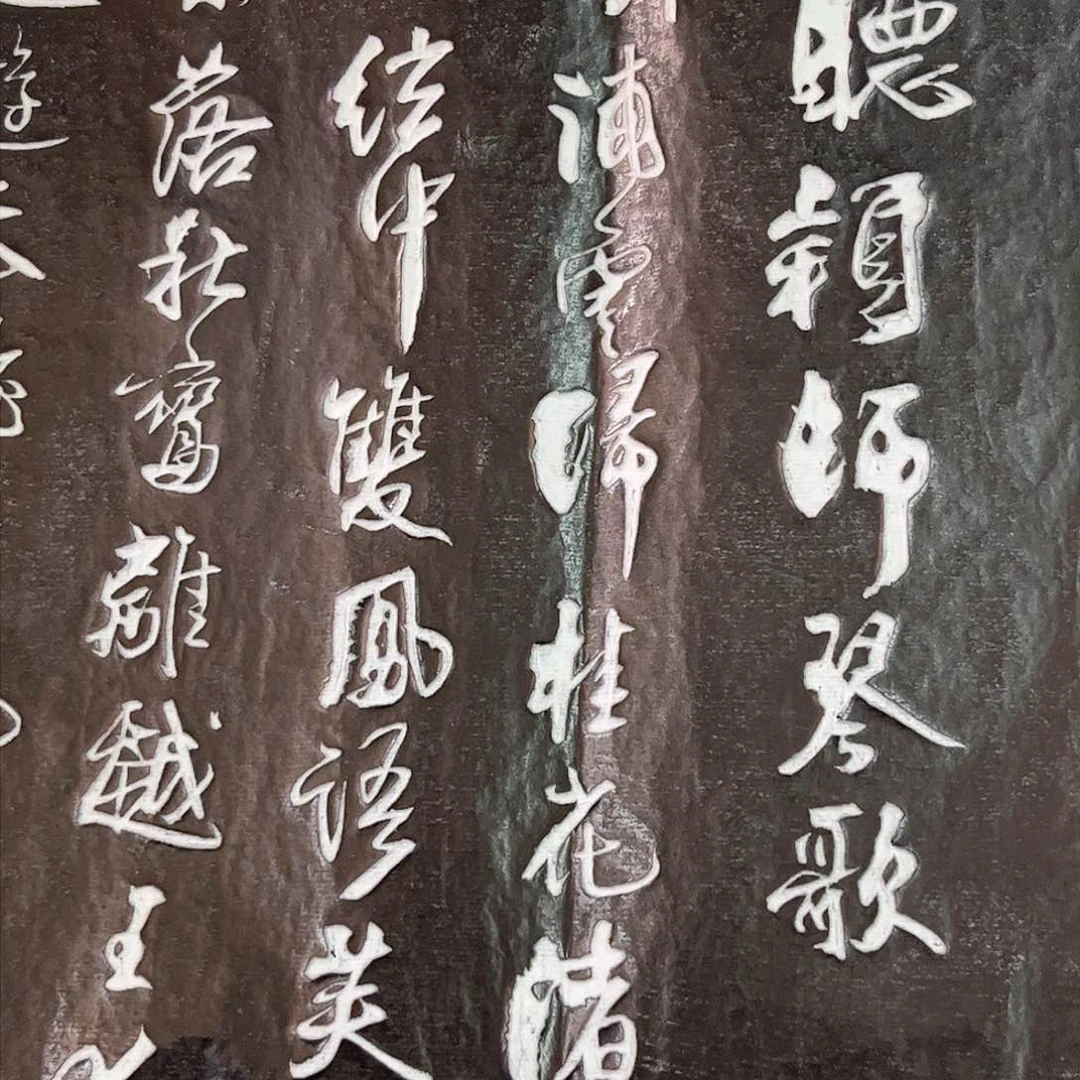 聽穎師琴歌
浦雲歸桂花渚
絃中雙鳳語芙
落秋鸞離越王
遊天姥